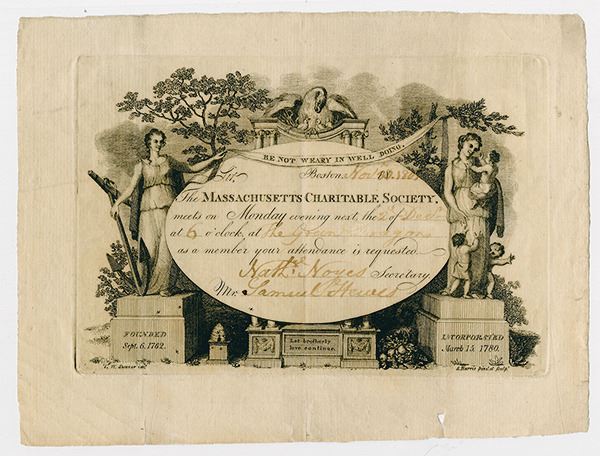 BE NOT WEARY IN WELL DOING.
Sir, Boston, Nov.
The MASSACHUSETTS CHARITABLE SOCIETY,
meets on Monday evening next, the 2d Decr.
at 6 o'clock, at the Green Dragon
as a member your attendance is requested.
Nathl. Noyes Secretary.
Mr. Samuel Hewes
FOUNDED
Sept. 6, 1762.
Let brotherly
love continue.
INCORPORATED
March 15. 1780.
S. Harris